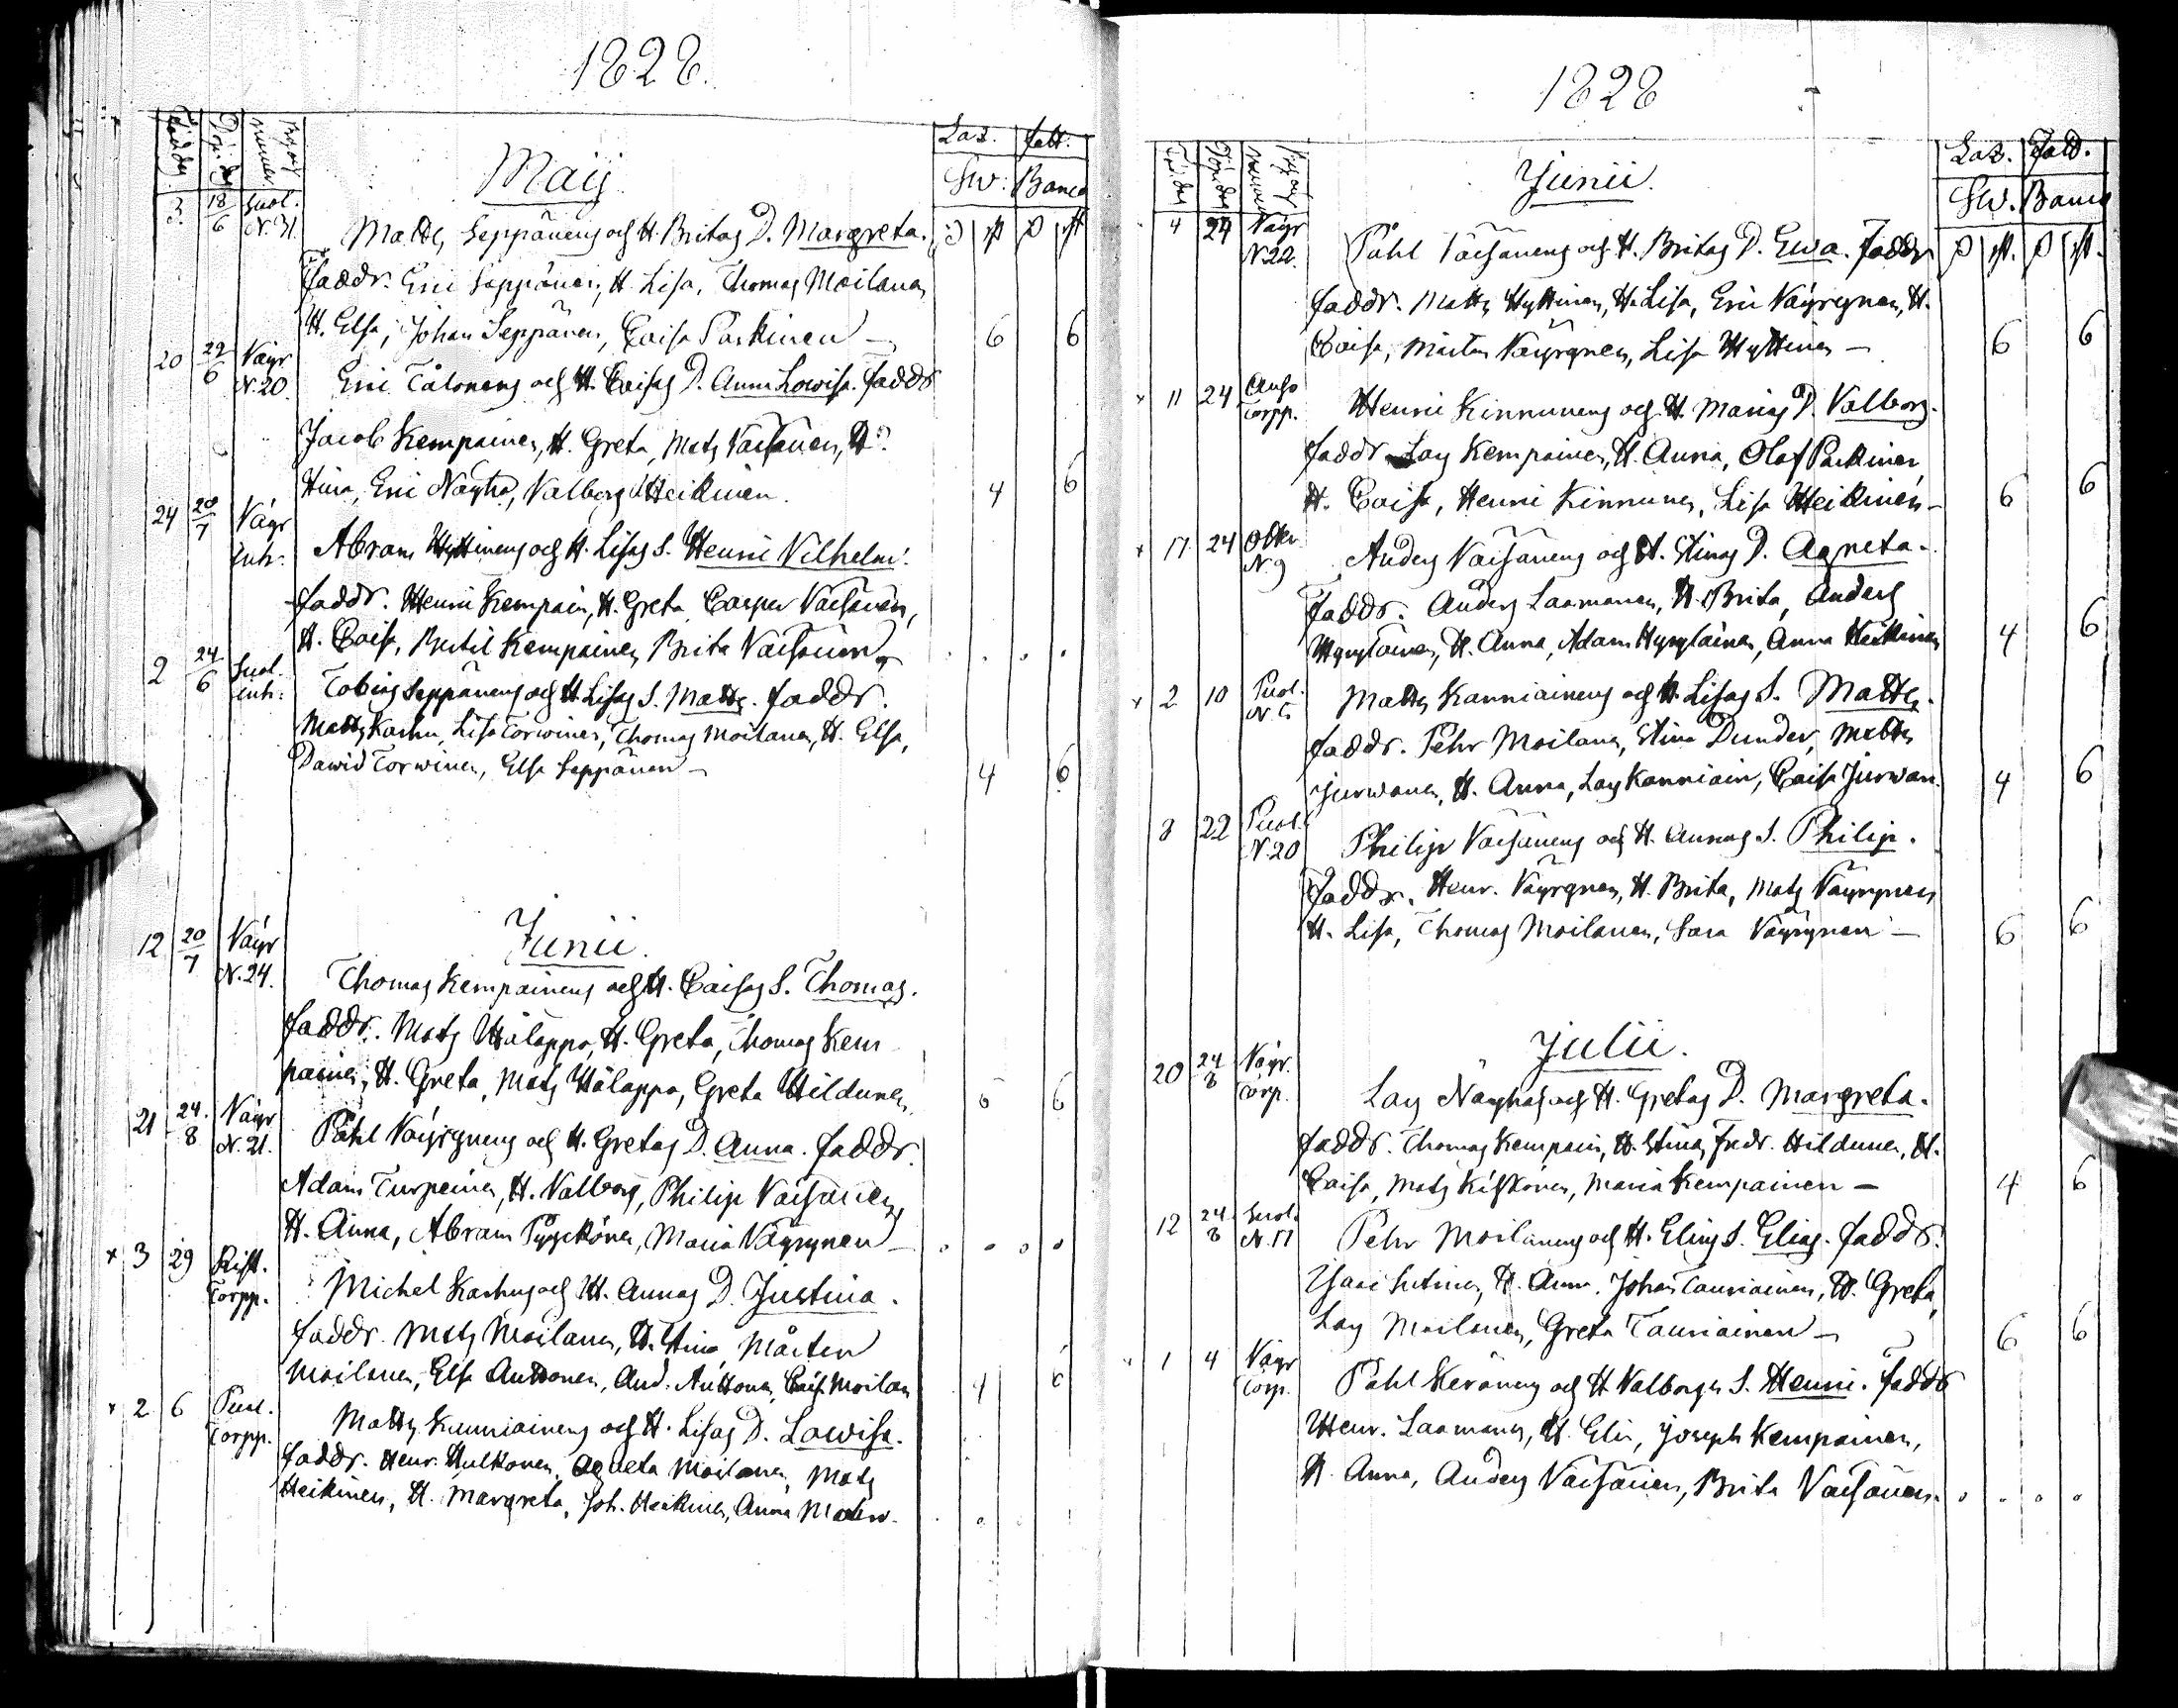 1828.
Födde. Döpe. By och nummer
Laz. fatt.
Sw: Banco
Maij
3. 18/6 Suol. N.31. Matts Seppänens och H. Britas D. Margreta.
faddr. Eric Seppänen, H. Lisa, Thomas Moilanen
H. Elsa, Johan Seppänen, Caisa Parkinen – 6 6
20 29/6 Väyr N.20. Eric Tålonens och H. Caisas D. Anna Lowisa. faddr
Jacob Kempainen, H. Greta, Mats Väisänen, H.
Stina, Eric Näyhä, Valborg Heikinen. 4 6
24 20/7 Väyr Inh: Abram Hyttinens och H. Lisas S. Henric Vilhelm.
faddr. Henric Kempain, H. Greta, Casper Väisänen,
H. Caisa, Bertil Kempainen, Brita Väisänen
2 24/6 Suol. inh: Tobias Seppänens och H Lisas S. Matts. faddr.
Matts Karhu, Lisa Torwinen, Thomas Moilanen, H. Elsa,
Dawid Torwinen, Elsa Seppänen – 4 6
Junii.
12 20/7 Väyr N.24. Thomas Kempainens och H. Caisas S. Thomas.
faddr. Mats Hålappa, H. Greta, Thomas Kem
painen, H. Greta, Mats Hålappa, Greta Hildunen. 6 6
21 24/8 Väyr N.21. Påhl Väyrynens och H. Gretas D. Anna. faddr.
Adam Turpeinen, H. Valborg, Philip Väisänen,
H. Anna, Abram Pyyckönen, Maria Väyrynen –
x 3 29 Rist. Torpp. Michel Karhus och H. Annas D. Justina.
faddr. Mats Moilanen, H. Stina, Mårten
Moilanen, Elsa Anttonen, And. Anttonen, Caisa Moilan 4 6
x 2 6 Puol. Torpp. Matts Kanniainens och H. Lisas D. Lowisa.
faddr. Henr. Hulkonen, Agneta Moilanen, Mats
Heikinen, H. Margreta, Joh. Heikinen, Anna
1828
Laz. Fatt.
Sw. Banco
Junii.
4 24 Väyr N.22. Påhl Väisänens och H. Britas D. Ewa. Faddr
faddr. Matts Hyttinen, H. Lisa, Eric Väyrynen, H.
Caisa, Mårten Väyrynen, Lisa Hyttinen – 6 6
x 11 24 Torpp. Henric Kinnunens och H. Marias D. Valborg.
faddr Lars Kempainen, H. Anna, Olof Parkinen
H. Caisa, Henric Kinnunen, Lisa Heikinen – 6 6
x 17 24 N.9 Anders Väisänens och H. Stinas D. Agneta.
Faddr. Anders Laamanen, H. Brita, Anders
Hyryläinen, H. Anna, Adam Hyryläinen, Anna Heikinen 4 6
x 2 10 Puol. N.5 Matts Kanniainens och H. Lisas S. Matts.
faddr. Pehr Moilanen, Stina Dunder, Matts
Jurwanen, H. Anna, Lars Kanniain, Caisa Jurwan. 4 6
8 22 Puol. N.20 Philip Väisänens och H. Annas S. Philip.
Faddr. Henr. Väyrynen, H. Brita, Mats Väyrynen
H. Lisa, Thomas Moilanen, Sara Väyrynen – 6 6
Julii.
20 24/8 Väyr. Torp. Lars Näyhäs och H. Gretas D. Margreta.
faddr. Thomas Kempain, H. Stina, Fredr. Hildunen, H.
Caisa, Mats Kiskönen, Maria Kempainen – 4 6
12 24/8 Suol. N.17 Pehr Moilanens och H. Elins S. Elias. faddr.
Isaac Sutinen, H. Anna, Johan Tauriainen, H. Greta,
Lars Moilanen, Greta Tauriainen – 6 6
1 4 Väyr Torp. Påhl Keränens och H Valborgs S. Henric. faddr
Henr. Laamanen, H. Elin, Joseph Kempainen,
H. Anna, Anders Väisänen, Brita Väisänen.